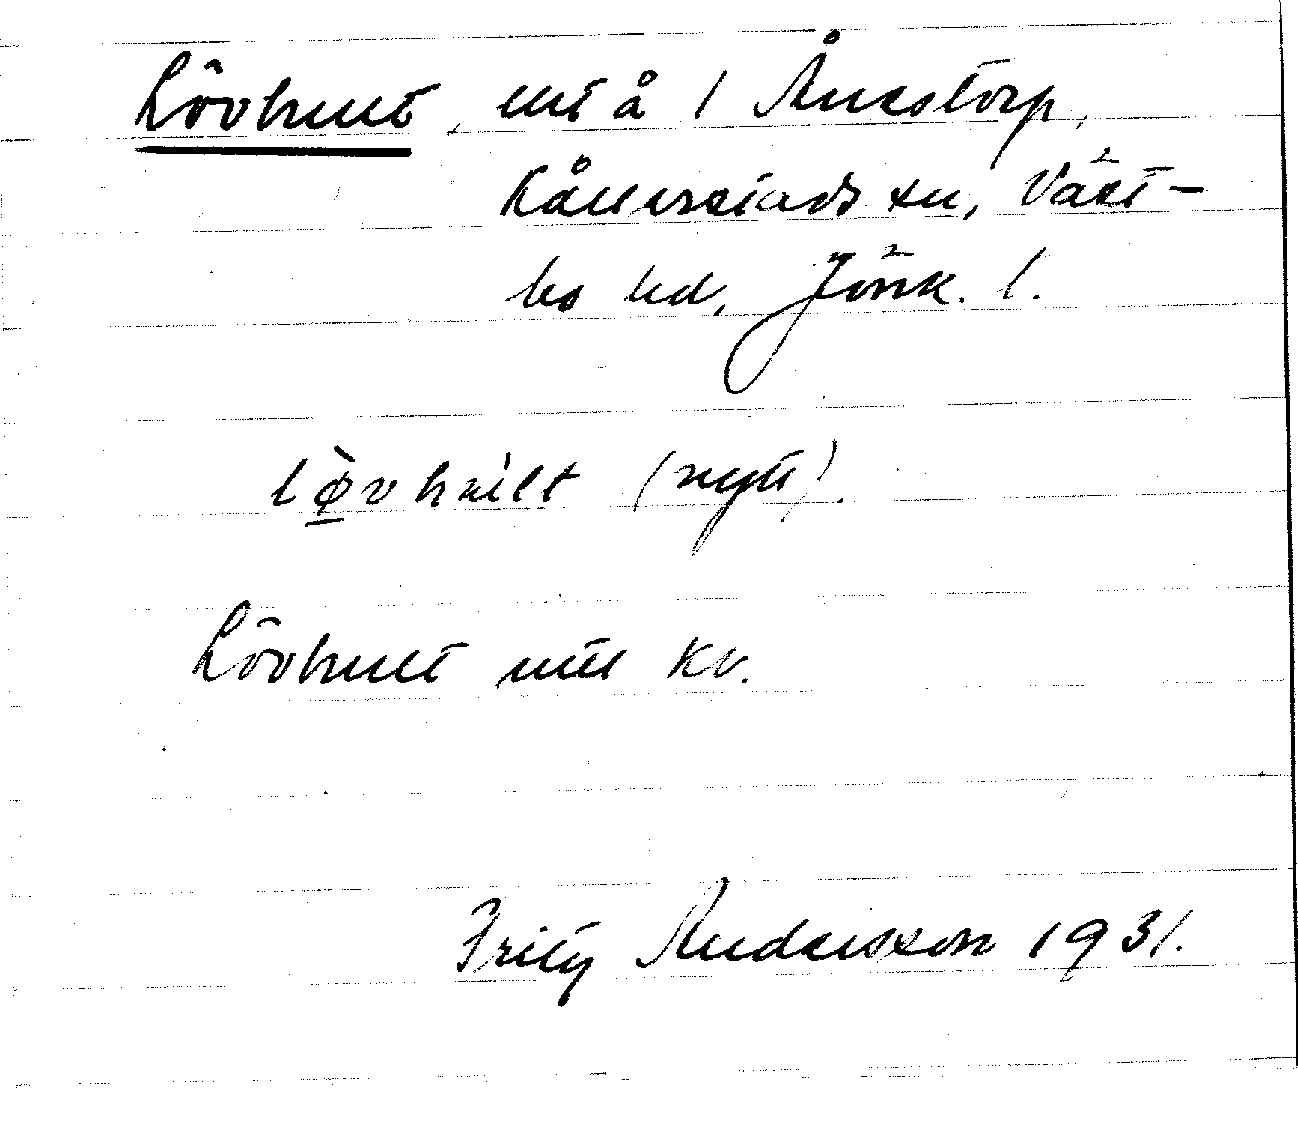 Lövhult, utä 1 Ånestorp,
Kållerstads sn, Väst-
bo hd, Jönk. l.
lø̀vhult (nytt).
Lövhult utt kv.
Fritz Andersson 1931.